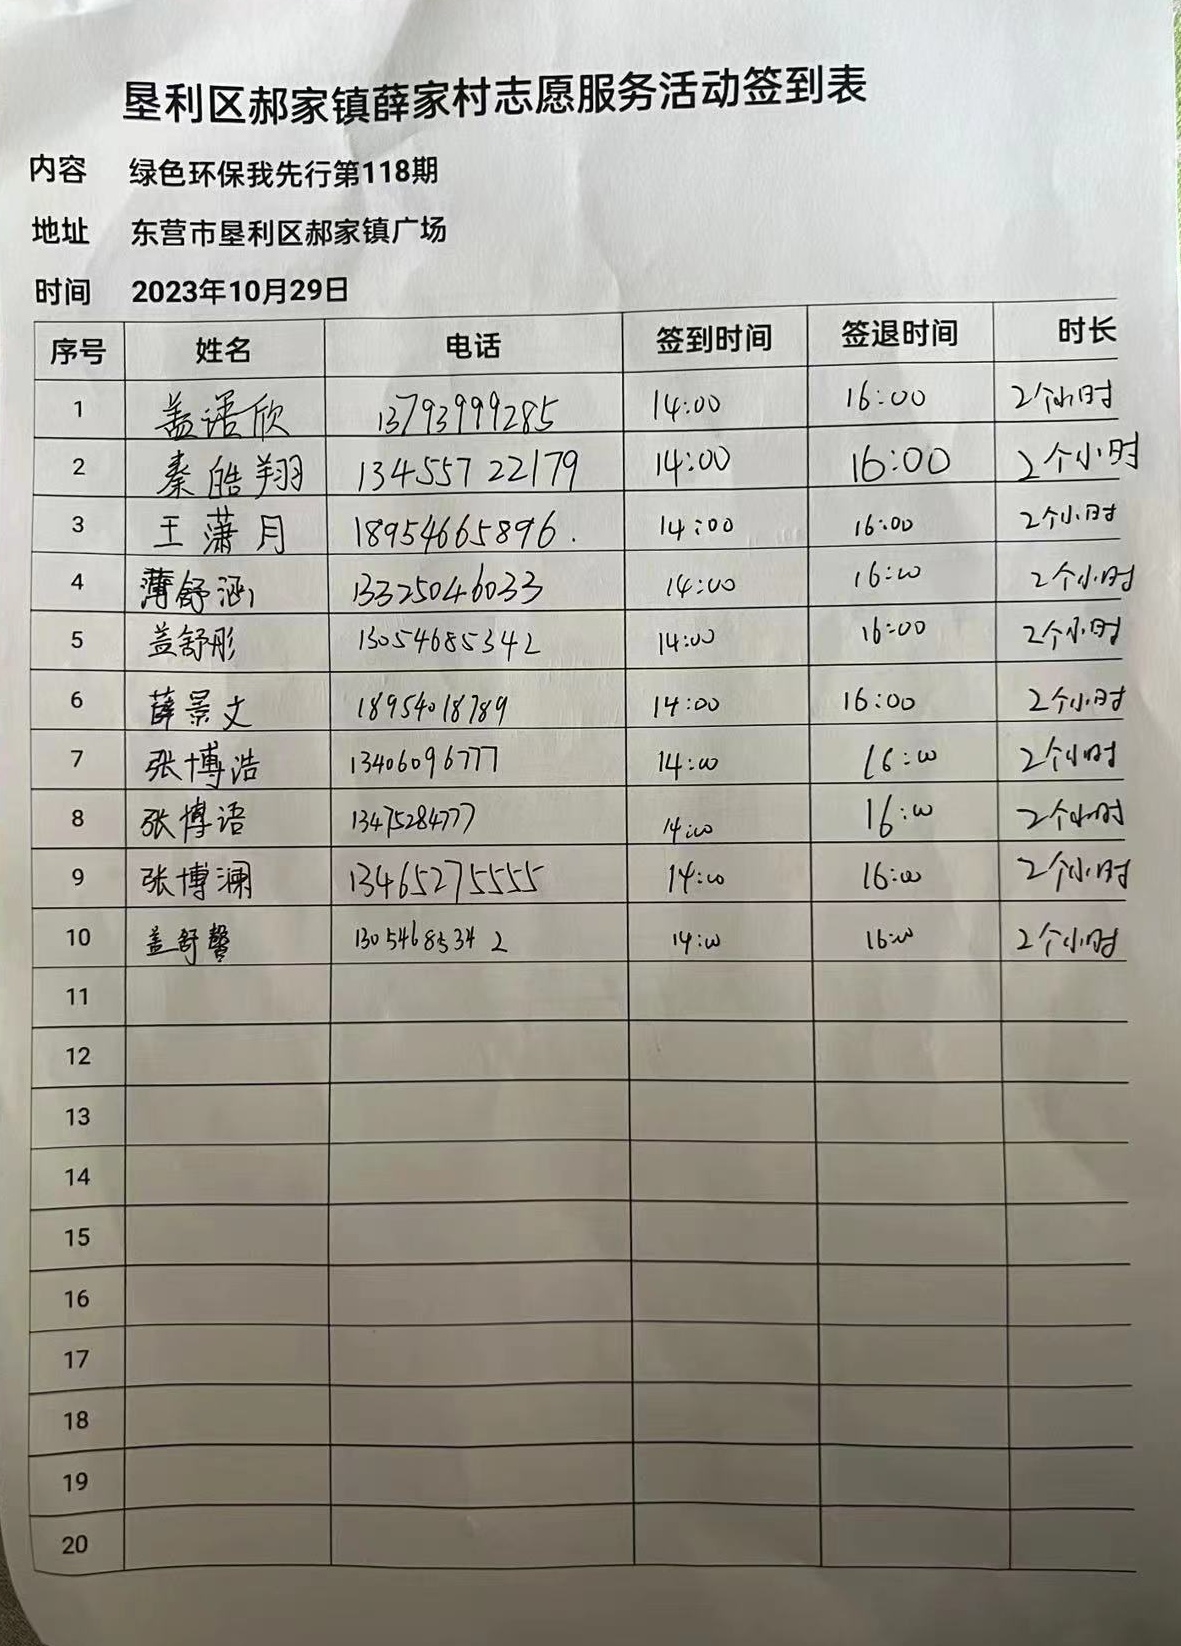 垦利区郝家镇薛家村志愿服务活动签到表
内容 绿色环保我先行第118期
地址 东营市垦利区郝家镇广场
时间 2023年10月29日
序号 姓名 电话 签到时间 签退时间 时长
1 盖诺欣 13793999285 14:00 16:00 2个小时
2 秦皓翔 13455722179 14:00 16:00 2个小时
3 王潇月 18954665896. 14:00 16:00 2个小时
4 薄舒涵 13325046033 14:00 16:00 2个小时
5 盖舒彤 13054685342 14:00 16:00 2个小时
6 薛景文 18954018789 14:00 16:00 2个小时
7 张博浩 13406096777 14:00 16:00 2个小时
8 张博语 13475284777 14:00 16:00 2个小时
9 张博澜 13465275555 14:00 16:00 2个小时
10 盖舒馨 13054685342 14:00 16:00 2个小时
11
12
13
14
15
16
17
18
19
20